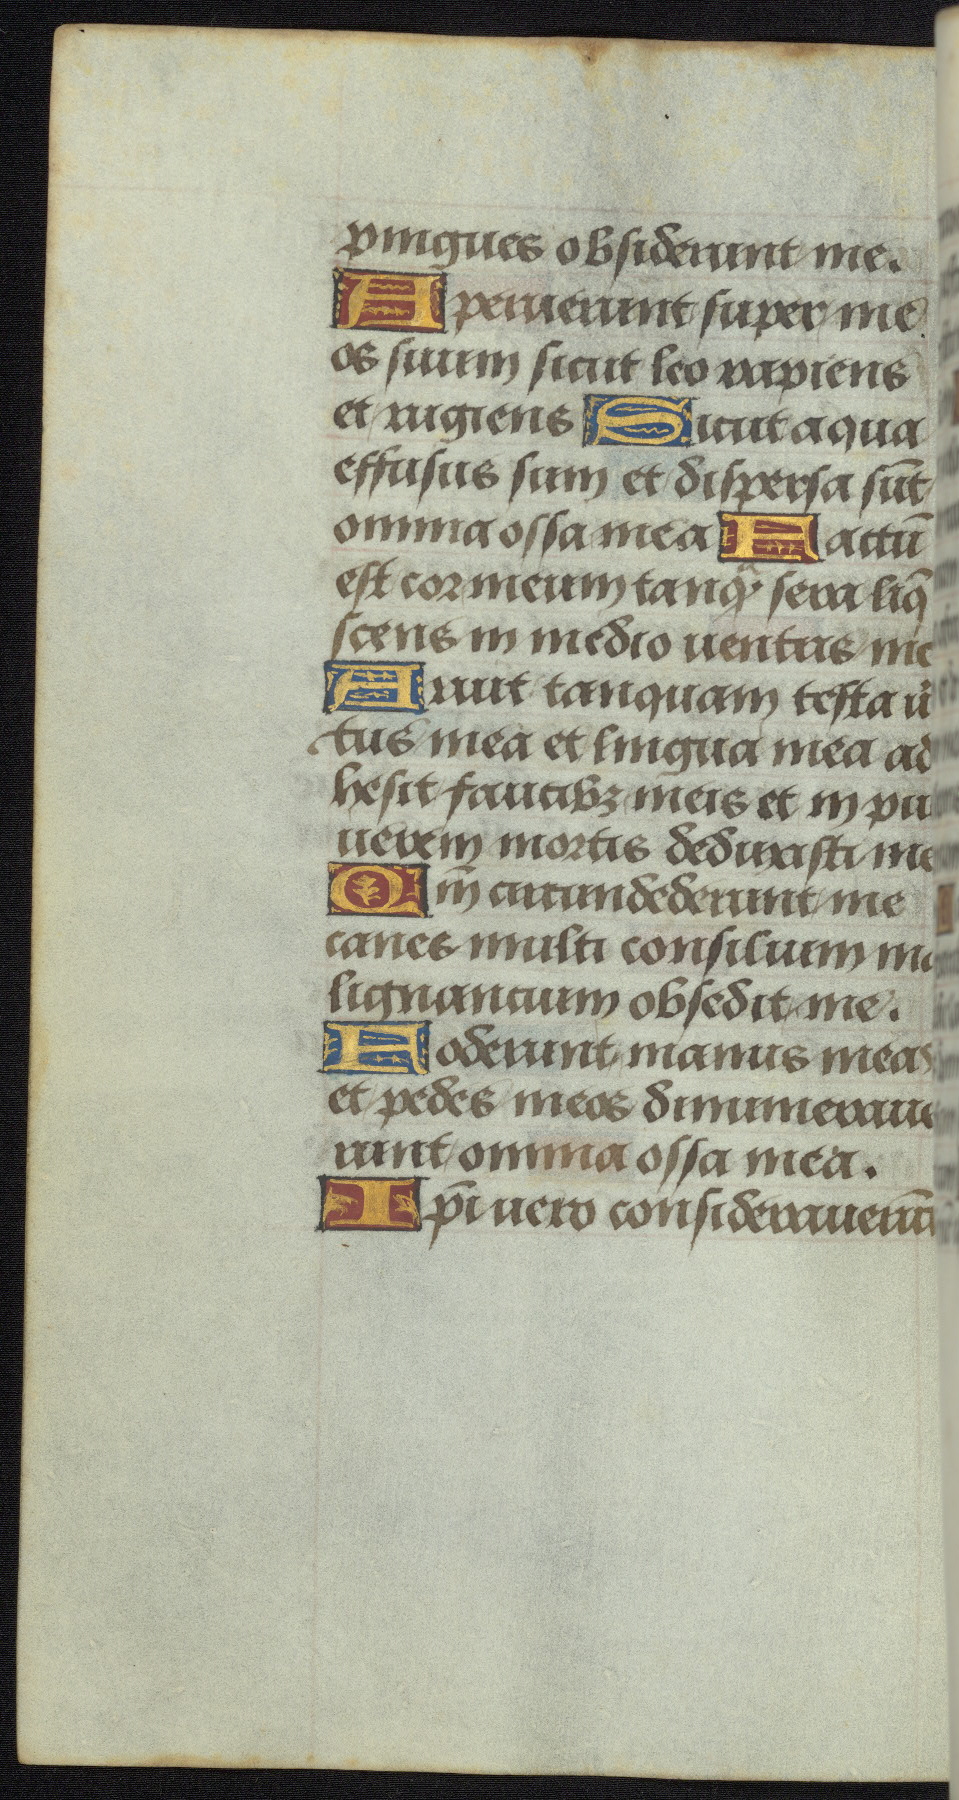 pingues obsiderunt me.
Aperuerunt super me
os suum sicut leo rapiens
et rugiens Sicut aqua
effusus sum et dispersa sūt
omnia ossa mea Factū
est cor meum tanq̄ sera liq̄
scens in medio uentris me
Aruit tanquam testa ui
tus mea et lingua mea ad
hesit faucibꝫ meis et in pu
uerem mortis deduxisti me
Qm̄ circundederunt me
canes multi consilium ma
lignancium obsedit me.
Foderunt manus meas
et pedes meos dinumeraue
runt omnia ossa mea.
Ip̄i uero considerauerūt